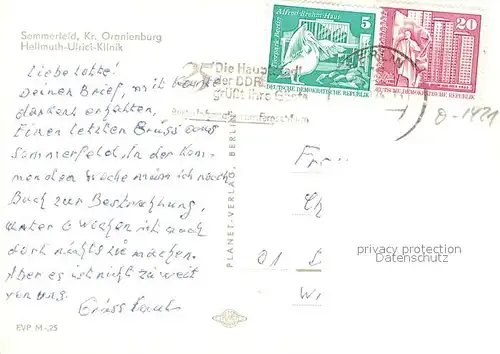 Sommerfeld, Kr. Oranienburg
Hellmuth-Ulrici-Klinik
Liebe Lotte!
Deinen Brief, mit
dankend erhalten,
Einen letzten Gruss aus
Sommerfeld, In der kom-
menden Woche muss ich nach
Buch zur Bestrahlung,
unter 6 Wochen ist auch
dort nichts zu machen.
Aber es ist nicht zu weit
von uns.
Grüss
EVP M -,25
PLANET-VERLAG, BERLIN
Alfred-Brehm-Haus
Tierpark Berlin
5
DEUTSCHE DEMOKRATISCHE REPUBLIK
20
DEUTSCHE DEMOKRATISCHE REPUBLIK
25
Die Hauptstadt
der DDR
grüßt ihre Gäste
BERLIN
Fr
01
W
privacy protection
Datenschutz